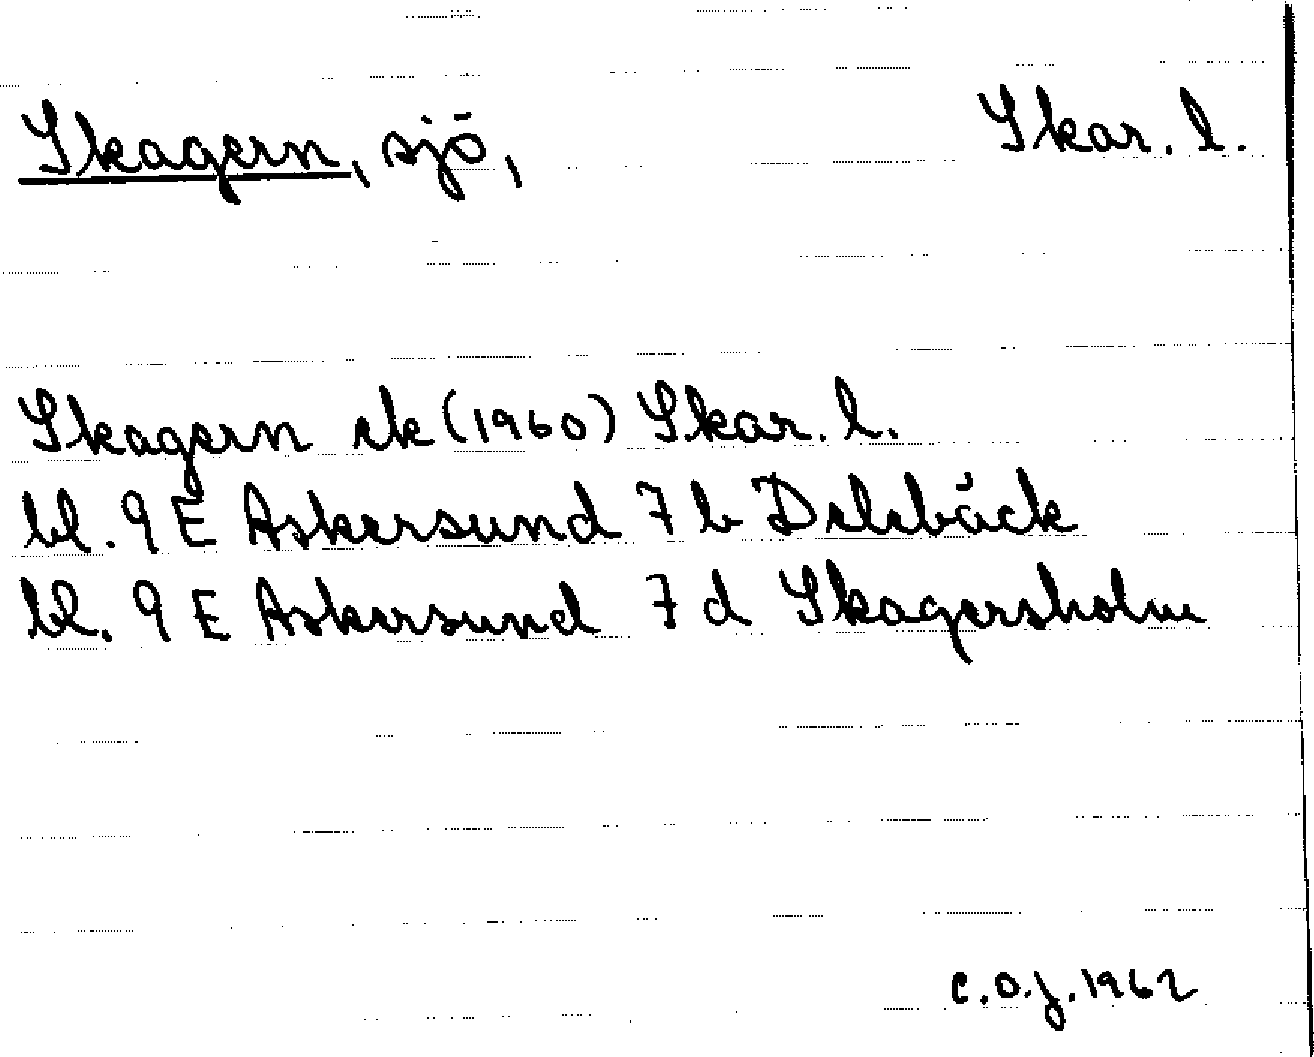 Skagern, sjö, Skar. l.
Skagern ek (1960) Skar. l.
bl. 9 E Askersund 7 b Delebäck
bl. 9 E Askersund 7 d Skagersholm
C.O.J. 1962